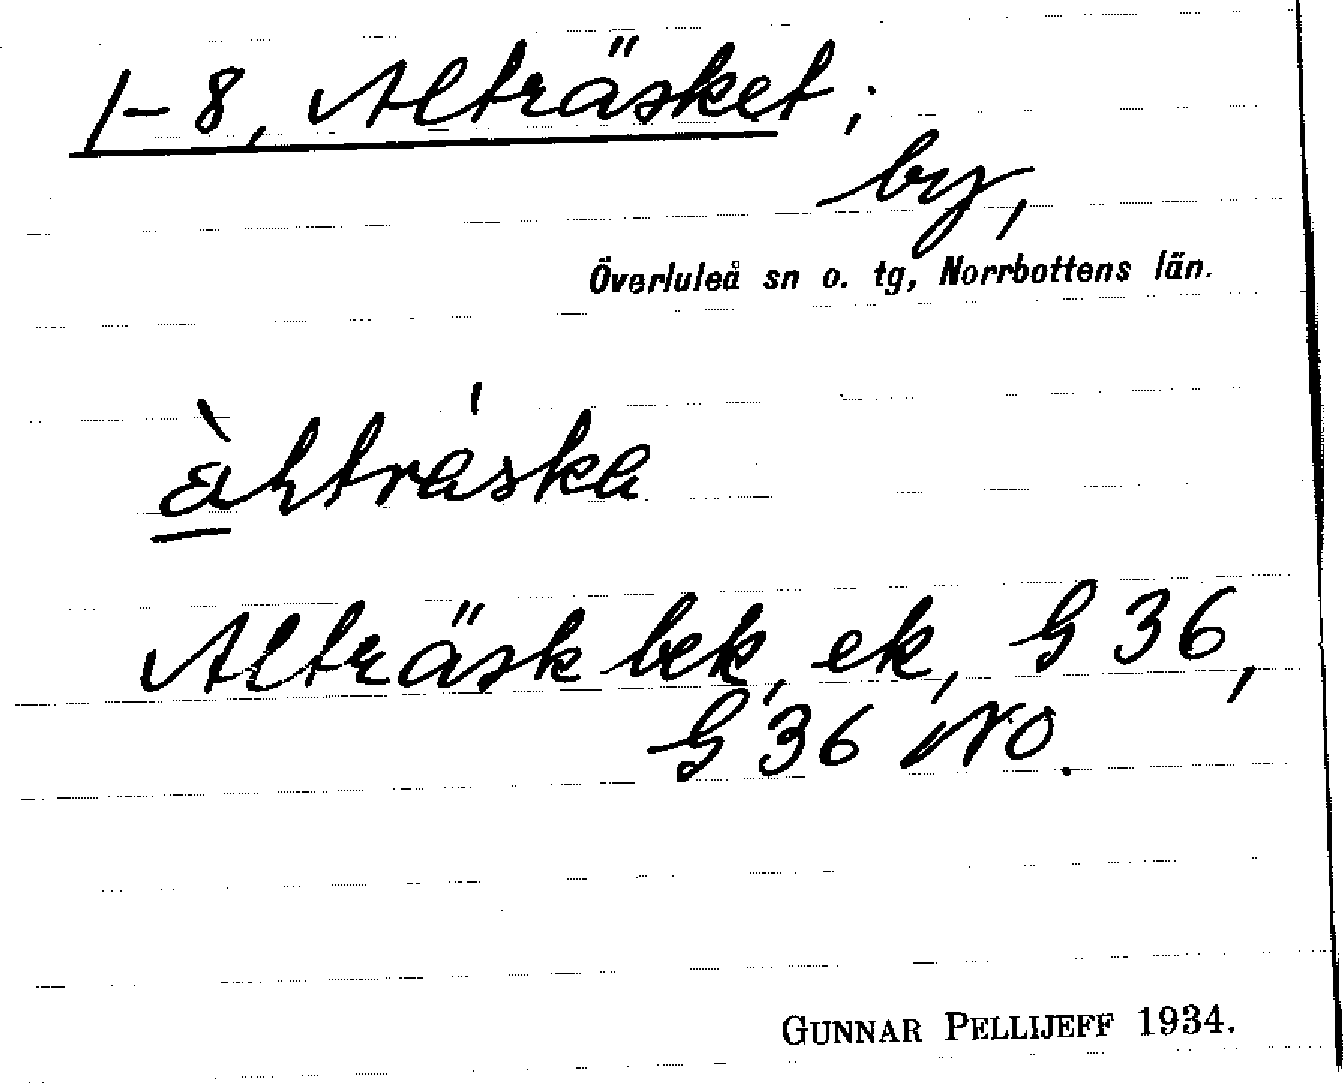 1-8, Alträsket;
by,
Överluleå sn o. tg, Norrbottens län.
Alträsk bek, ek, G 36,
G 36 NO.
GUNNAR PELLIJEFF 1934.